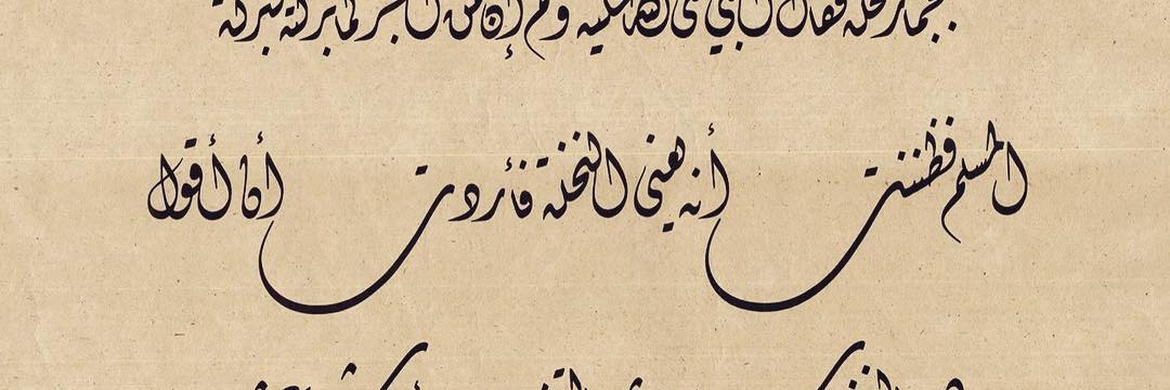 بجمار نخلة فقال النبي صلى الله عليه وسلم إن من الشجر لما بركته كبركة
المسلم فظننت أنه يعني النخلة فأردت أن أقول